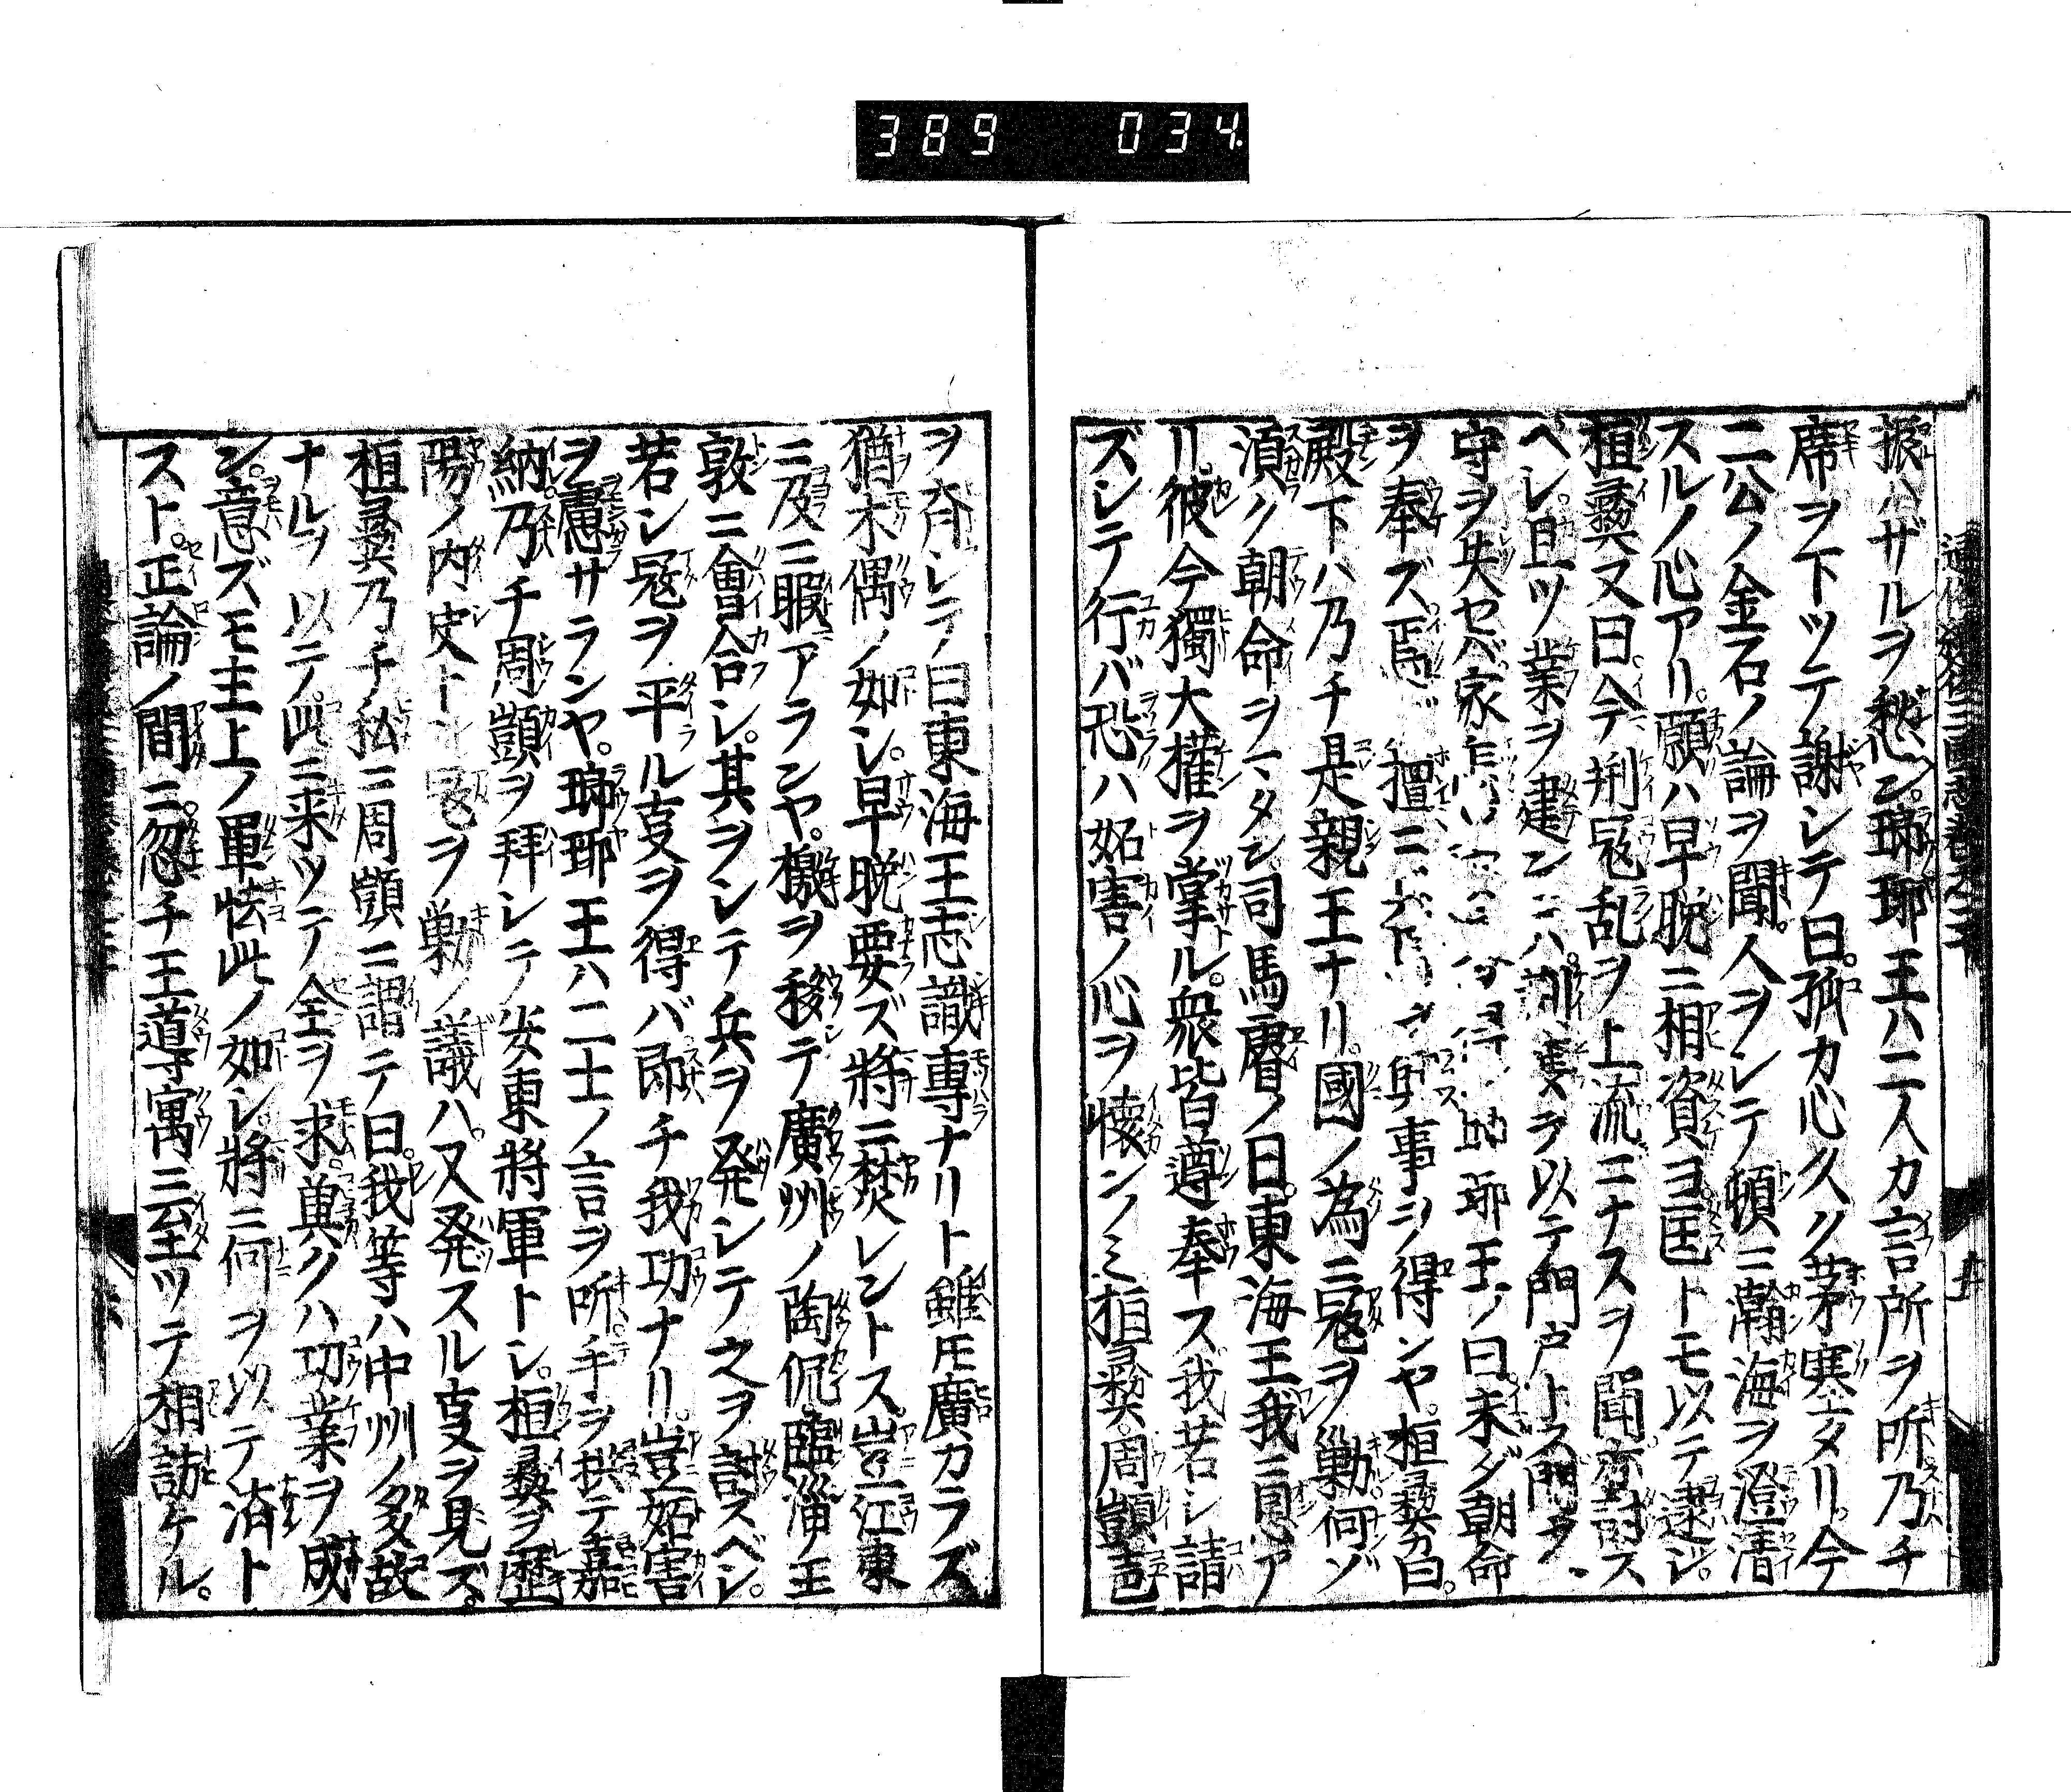 389 034
振ハザルヲ愁ン。瑯琊王ハ二人カ言所ヲ听乃チ
席ヲ下ツテ謝シテ曰。孤カ心久ク茅塞セタリ。今
二公ノ金石ノ論ヲ聞。人ヲシテ頓ニ瀚海ヲ澄清
スルノ心アリ。願ハ早晩ニ相資ヨ。匡トモ以テ逮シ。
桓彜又曰今荊冦乱ヲ上流ニナスヲ聞亦討ス
ベシ。且ツ業ヲ建ンニハ。荊襄ヲ以テ門戸トス門ヲ
守ヲ失セバ家 琊王ノ曰。未ダ朝命
ヲ奉ズ焉ゾ擅ニ 兵事ヲ得ンヤ。桓彜曰。
殿下ハ乃チ是親王ナリ。國ノ為ニ冦ヲ勦何ゾ
湏ク朝命ヲ一タン司馬睿ノ曰。東海王我ニ恩ア
リ。彼今獨大權ヲ掌ル。衆皆遵奉ス我若シ請
ズシテ行バ恐ハ妬害ノ心ヲ懐ンノミ桓彜。周顗色
ヲ斉シテノ曰東海王志識専ナリト雖𪜈廣カラズ
猶木偶ノ如シ。早晩要ズ將ニ焚レントス。豈江東
ニ及ニ暇アランヤ。檄ヲ移テ廣州ノ陶侃臨淄ノ王
敦ニ會合シ。其ヲシテ兵ヲ発シテ之ヲ討スベシ。
若シ冦ヲ平ル㕝ヲ得バ即チ我功ナリ。豈妬害
ヲ慮サランヤ。瑯琊王ハ二士ノ言ヲ听手ヲ拱テ嘉
納乃チ周顗ヲ拜シテ安東將軍トシ。桓彜ヲ歴
陽ノ内史トシ冦ヲ勦ノ議ハ。又発スル㕝ヲ見ズ。
桓彜乃チ私ニ周顗ニ謂テ曰。我等ハ中州ノ多故
ナルヲ以テ。此ニ来ツテ全ヲ求。冀クハ功業ヲ成
ン。意ズモ主上ノ單怯此ノ如シ。將ニ何ヲ以テ済ト
スト。正論ノ間ニ。忽チ王導寓ニ至ツテ相訪ケル。